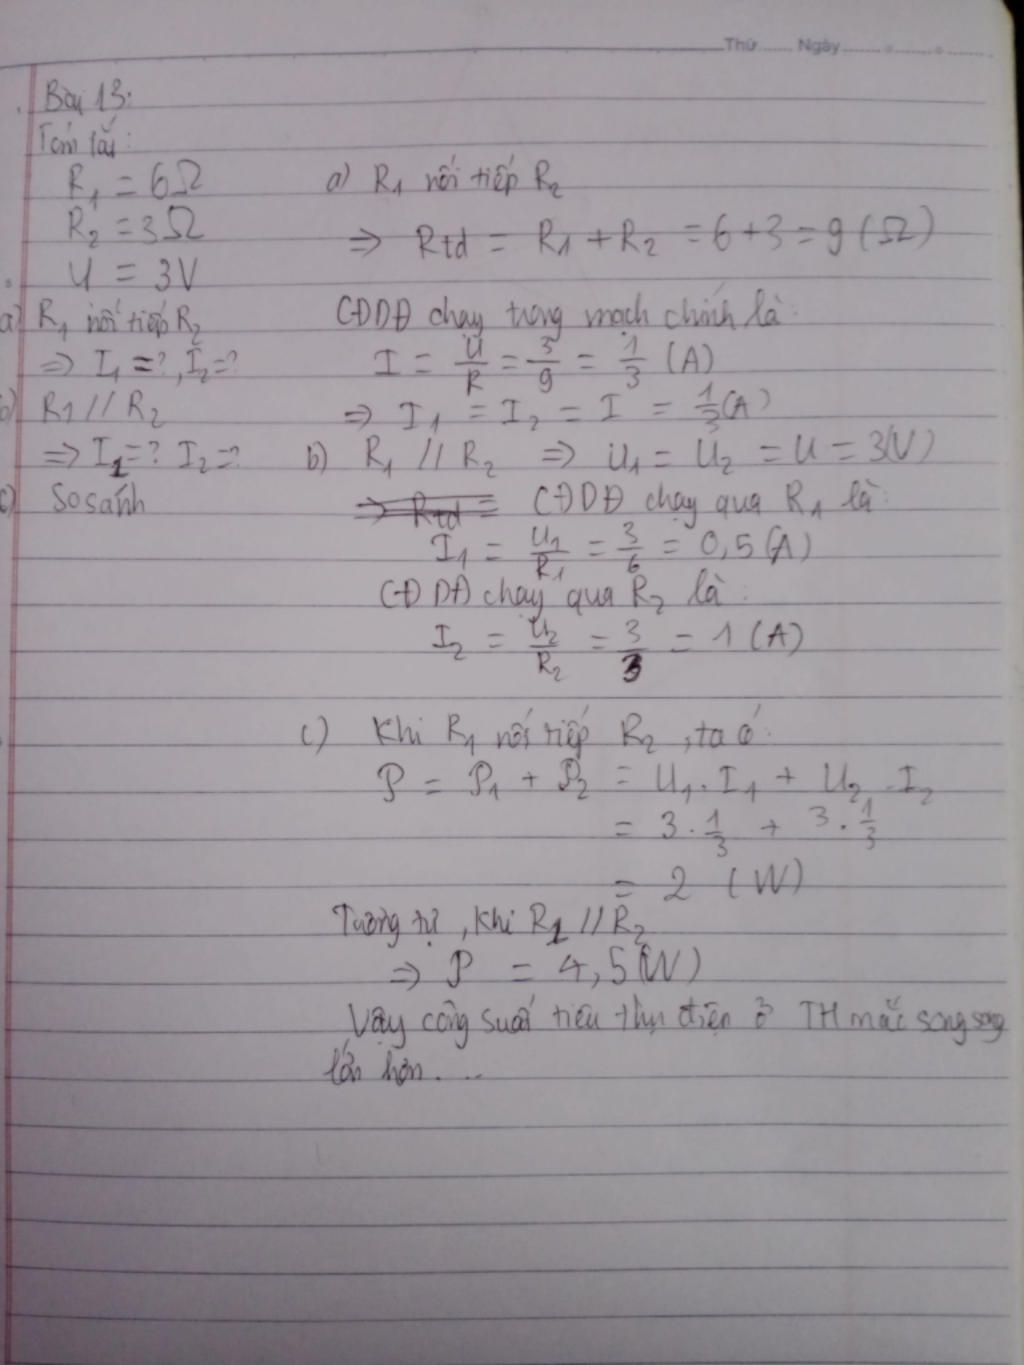 Thứ...... Ngày...............
Bài 13:
Tóm tắt:
R₁ = 6Ω
R₂ = 3Ω
U = 3V
a) R₁ nối tiếp R₂
⇒ I₁ = ?, I₂ = ?
b) R₁ // R₂
⇒ I₁ = ? I₂ = ?
c) So sánh
a) R₁ nối tiếp R₂
⇒ Rtđ = R₁ + R₂ = 6 + 3 = 9 (Ω)
CĐDĐ chạy trong mạch chính là:
I = U/R = 3/9 = 1/3 (A)
⇒ I₁ = I₂ = I = 1/3 (A)
b) R₁ // R₂ ⇒ U₁ = U₂ = U = 3(V)
⇒ Rtđ = CĐDĐ chạy qua R₁ là:
I₁ = U₁/R₁ = 3/6 = 0,5 (A)
CĐDĐ chạy qua R₂ là:
I₂ = U₂/R₂ = 3/3 = 1 (A)
c) Khi R₁ nối tiếp R₂, ta có:
P = P₁ + P₂ = U₁. I₁ + U₂. I₂
= 3. 1/3 + 3. 1/3
= 2 (W)
Tương tự, khi R₁ // R₂
⇒ P = 4,5(W)
Vậy công suất tiêu thụ điện ở TH mắc song song
lớn hơn....